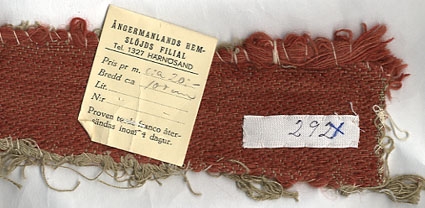 ÅNGERMANLANDS HEM-
SLÖJDS FILIAL
Tel. 1327 HÄRNÖSAND
Pris pr m. cia 20:-
Bredd ca 100 cm
Litt.
N:r
Proven torde franco åter-
sändas inom 4 dagar.
292